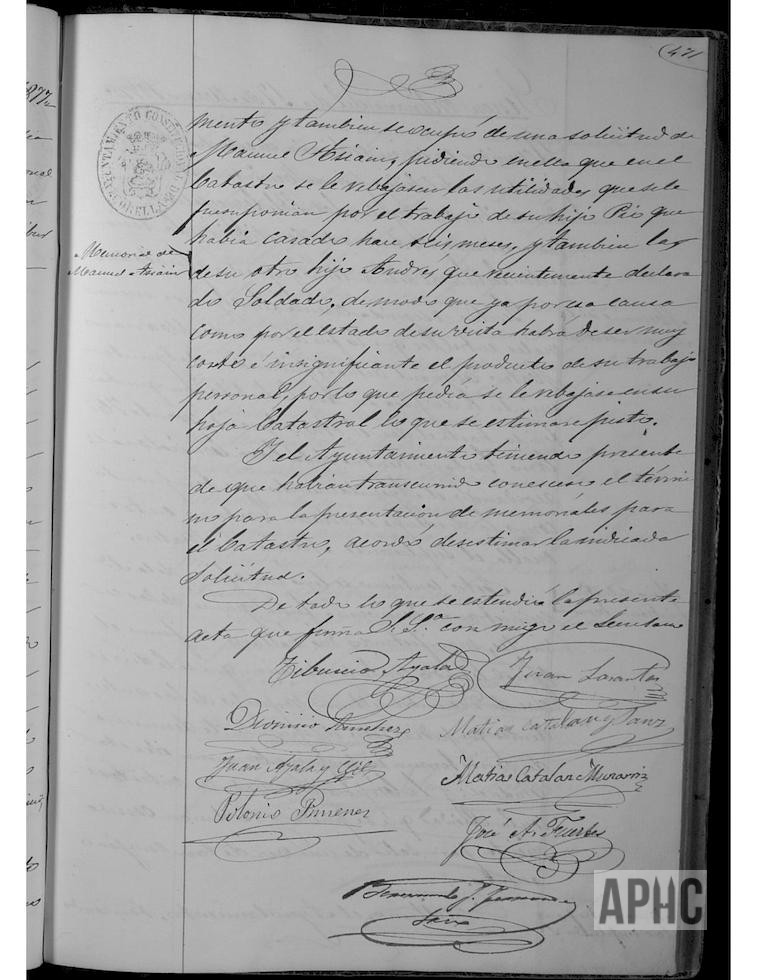 471
mento y tambien se ocupó de una solicitud de
Manuel Asiain, pidiendo en ella que en el
Catastro se le rebajasen las utilidades que se le
presuponian por el trabajo de su hijo Pio que
habia casado hace seis meses, y tambien las
de su otro hijo Andrés que recientemente declara
do Soldado, de modo que ya por esa causa
como por el estado de su vista habrá de ser muy
corto é insignificante el producto de su trabajo
personal, por lo que pedía se le rebajase en su
hoja Catastral lo que se estimare justo.
Memorial de
Manuel Asiain
Y el Ayuntamiento teniendo presente
de que habian transcurrido con esceso el térmi
no para la presentacion de memoriales para
el Catastro, acordó desestimar la indicada
Solicitud.
De todo lo que se estendió la presente
acta que firma S. Sª con migo el Secretario
Tiburcio Ayala
Juan Lorantes
Dionisio Jimenez
Matias Catalan y Sanz
Juan Ayala y Gil
Matias Catalan Munarriz
Polonio Jimenez
José A. Fuertes
APHC